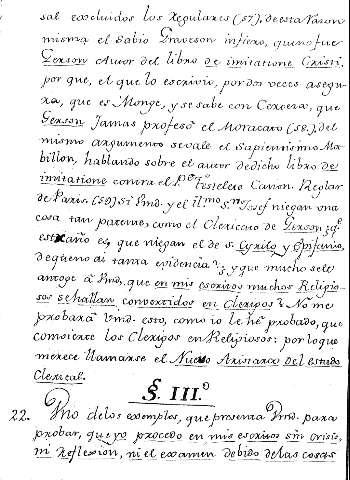 sal excluidos los Regulares (57). de esta razon
misma el Sabio Graveson infiere, que no fue
Gerson Autor del libro de imitatione Cristi,
por que, el que lo escrivio, por dos veces asegu-
ra, que es Monge, y se sabe con Certeza, que
Gerson Jamas profesó el Moracato (58). del
mismo argumento se vale el Sapientisimo Ma-
billon, hablando sobre el autor de dicho libro de
imitatione contra el P.e Testelete Canon. Reglar
de Paris. (59). Si Vmd. y el Il.mo S.r Josef niegan una
cosa tan patente, como el Clericato de Gerson; q.e
estraño es, que niegan el de S. Cyrilo y Epifanio,
de que no ai tanta evidencia? y que mucho se le
antoge á Vmd, que en mis escritos muchos Religio-
sos se hallan convertidos en Clerigos? No me
probará Vmd. esto, como io le hé probado, que
convierte los Clerigos en Religiosos: por lo que
merece llamarse el Nuevo Aristarco del estado
Clerical.
§. III.º
22. Uno de los exemplos, que presenta Vmd. para
probar, que yo procedo en mis escritos sin crisis,
ni Reflexion, ni el examen debido de las cosas